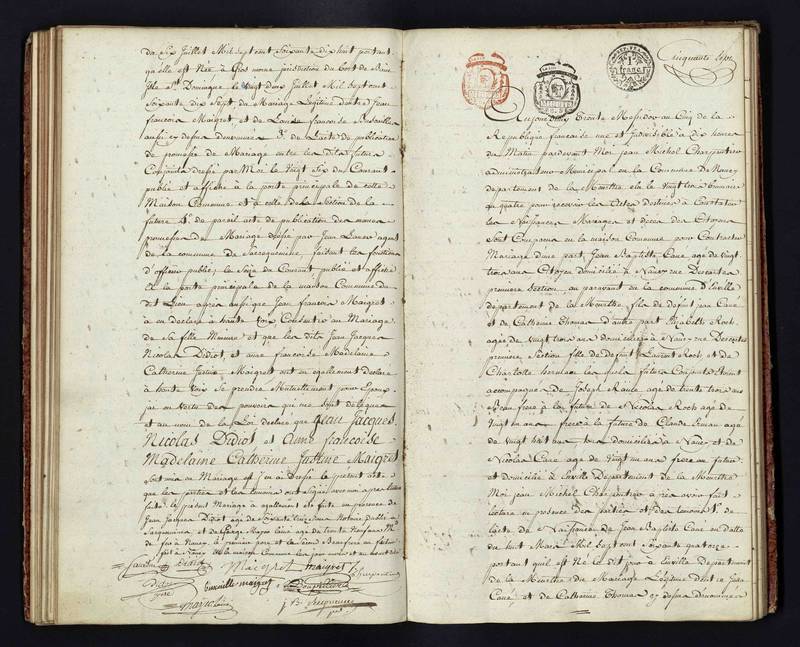 du Six Juillet Mil sept cent Soixante dix huit portant
qu'elle est Née à Gros morne jurisdiction du Port de Paix
Isle St Domingue le vingt deux Juillet Mil Sept cent
Soixante dix Sept du Mariage Légitime d'entre Jean
francois Maigret et de Louise francoise
aussi cy dessus denommés 3°. de L'acte de publication
de promesse de Mariage entre les dits futurs
Conjoints dressé par Moi le Vingt Six du Courant
publié et affiché à la porte principale de cette
Maison Commune et à celle de la Section de la
future 4°. de pareil acte de publication des mêmes
promesses de Mariage dressé par Jean agent
de la commune de Sarreguemine, faisant les fonctions
d'officier public, le Seize du Courant, publié et affiché
à la porte principale de la maison Commune du
dit Lieu après aussi que Jean francois Maigret
à eu declaré à haute voix Consentir au Mariage
de Sa fille Mineure et que les dits Jean Jacques
Nicolas Didiot, et anne francoise Madelaine
Catherine Justine Maigret ont eu egallement declaré
à haute voix se prendre Mutuellement pour Epoux
j'ai en vertu des pouvoirs qui me sont délégués
et au nom de la Loi declaré que Jean Jacques
Nicolas Didiot et anne francoise
Madelaine Catherine Justine Maigret
sont unis en Mariage et j'en ai dressé le présent acte
que les parties et les temoins ont signé avec moi après lecture
faite. le présent Mariage a egallement été fait en présence de
Jean Jacques Didiot agé de Soixante ans Notaire public à
Sarguemine, et de agé de trente Neuf ans
de fer à Nancy
fait à Nancy en la maison Commune les jour mois et an avant dits
Didiot Maigret maigret Charpentier
maigret
Cinquante Sept
1 franc
Aujourd'huy trente Messidor an Cinq de la
République francaise une et Indivisible à dix heures
du Matin pardevant Moi jean Michel Charpentier
administrateur Municipal en la Commune de Nancy
departement de la Meurthe elu le vingt trois brumaire
an quatre pour recevoir les Actes destinés à Constater
les Naissances Mariages et décès des Citoyens
Sont Comparus en la maison Commune pour Contracter
Mariage d'une part, Jean Baptiste Cané agé de vingt
trois ans Citoyen domicilié à Nancy rue Descartes
première Section, au paravant en la commune d'Einville
departement de la Meurthe, fils de defunt jean Cané
et de Catherine Thomas d'autre part Elisabeth Roch
agée de vingt trois ans domiciliée à Nancy rue Descartes
première Section fille de defunt Laurent Roch et de
Charlotte les quels futurs Conjoints étoient
accompagnés de Joseph agé de trente trois ans
Beau frère à la future de Nicolas Roch agé de
vingt un ans frere à la future de Claude agé
de vingt huit ans tous domiciliés à Nancy et de
Nicolas Cané agé de vingt un ans frere au futur
et domicilié à Einville Département de la Meurthe
Moi jean Michel Charpentier après avoir fait
lecture en présence des parties et des temoins 1°. de
l'acte de Naissance de Jean Baptiste Cané en datte
du huit Mars Mil Sept cent Soixante quatorze
portant quil est Né le dit jour à Einville departement
de la Meurthe du Mariage Légitime d'entre Jean
Cané, et de Catherine Thomas cy dessus denommés